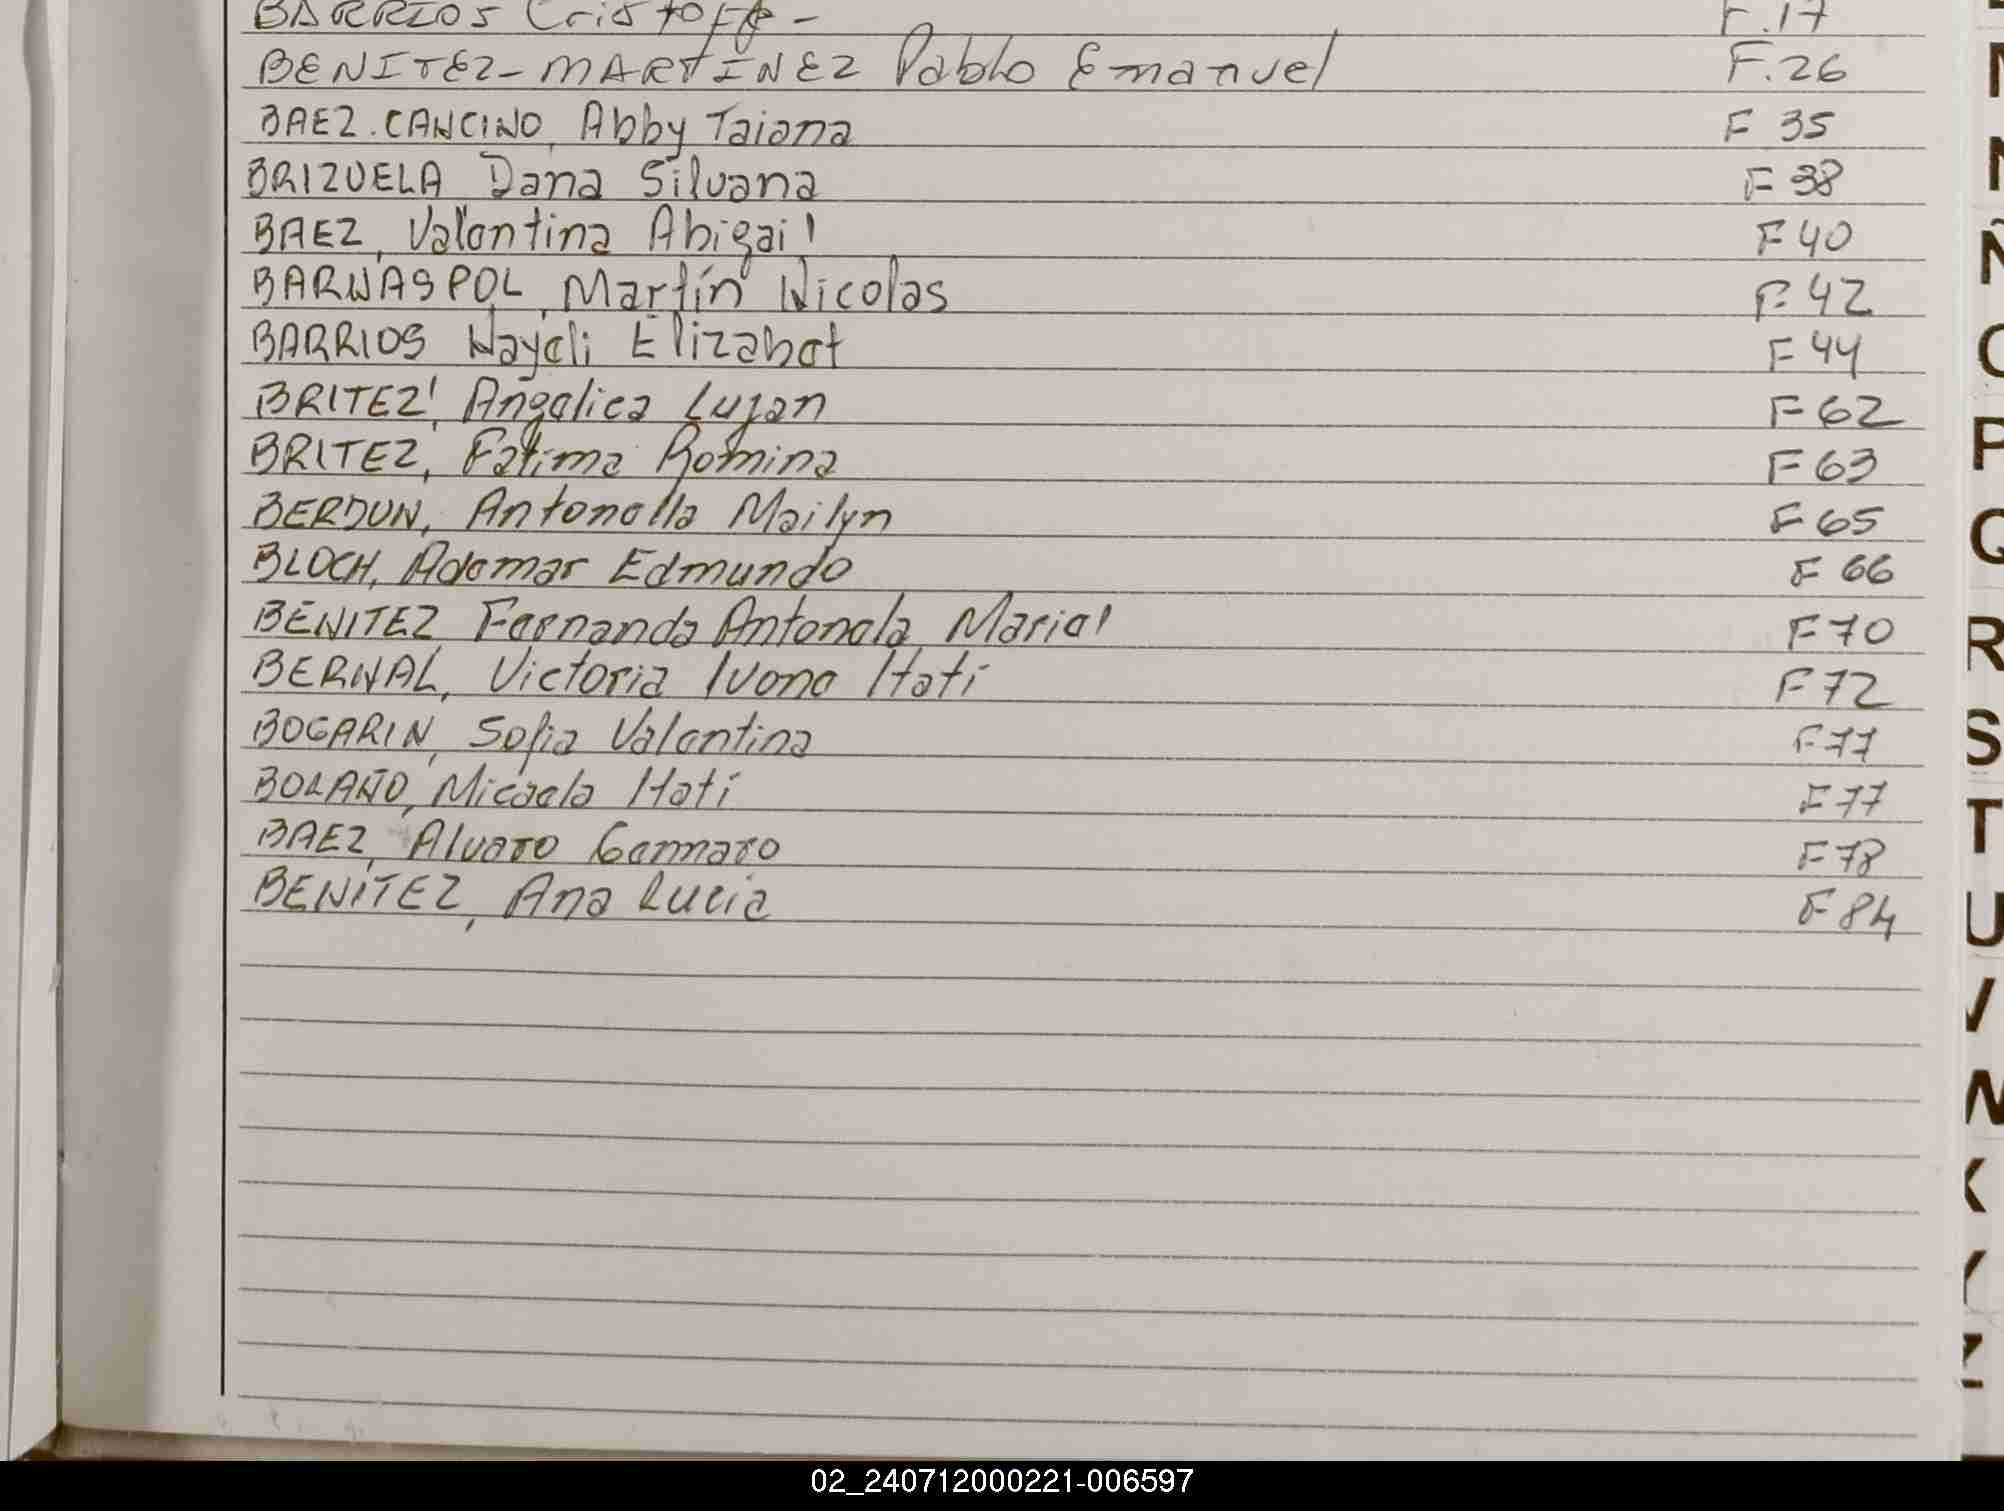 BARRIOS Cristoffe - F.17
BENITEZ-MARTINEZ Pablo Emanuel F.26
BAEZ.CANCINO, Abby Taiana F 35
BRIZUELA Dana Silvana F 38
BAEZ, Valentina Abigail F 40
BARNASPOL, Martín Nicolas F 42
BARRIOS Nayeli Elizabet F 44
BRITEZ, Angelica Lujan F 62
BRITEZ, Fatima Romina F 63
BERDUN, Antonella Mailyn F 65
BLOCH, Ademar Edmundo F 66
BENITEZ Fernanda Antonela Mariel F 70
BERNAL, Victoria Ivone Itatí F 72
BOGARIN, Sofia Valentina F 77
BOLAÑO, Micaela Itatí F 77
BAEZ, Alvaro Gennaro F 78
BENÍTEZ, Ana Lucia F 84
N
N
Ñ
O
P
Q
R
S
T
U
V
W
X
Y
Z
02_240712000221-006597